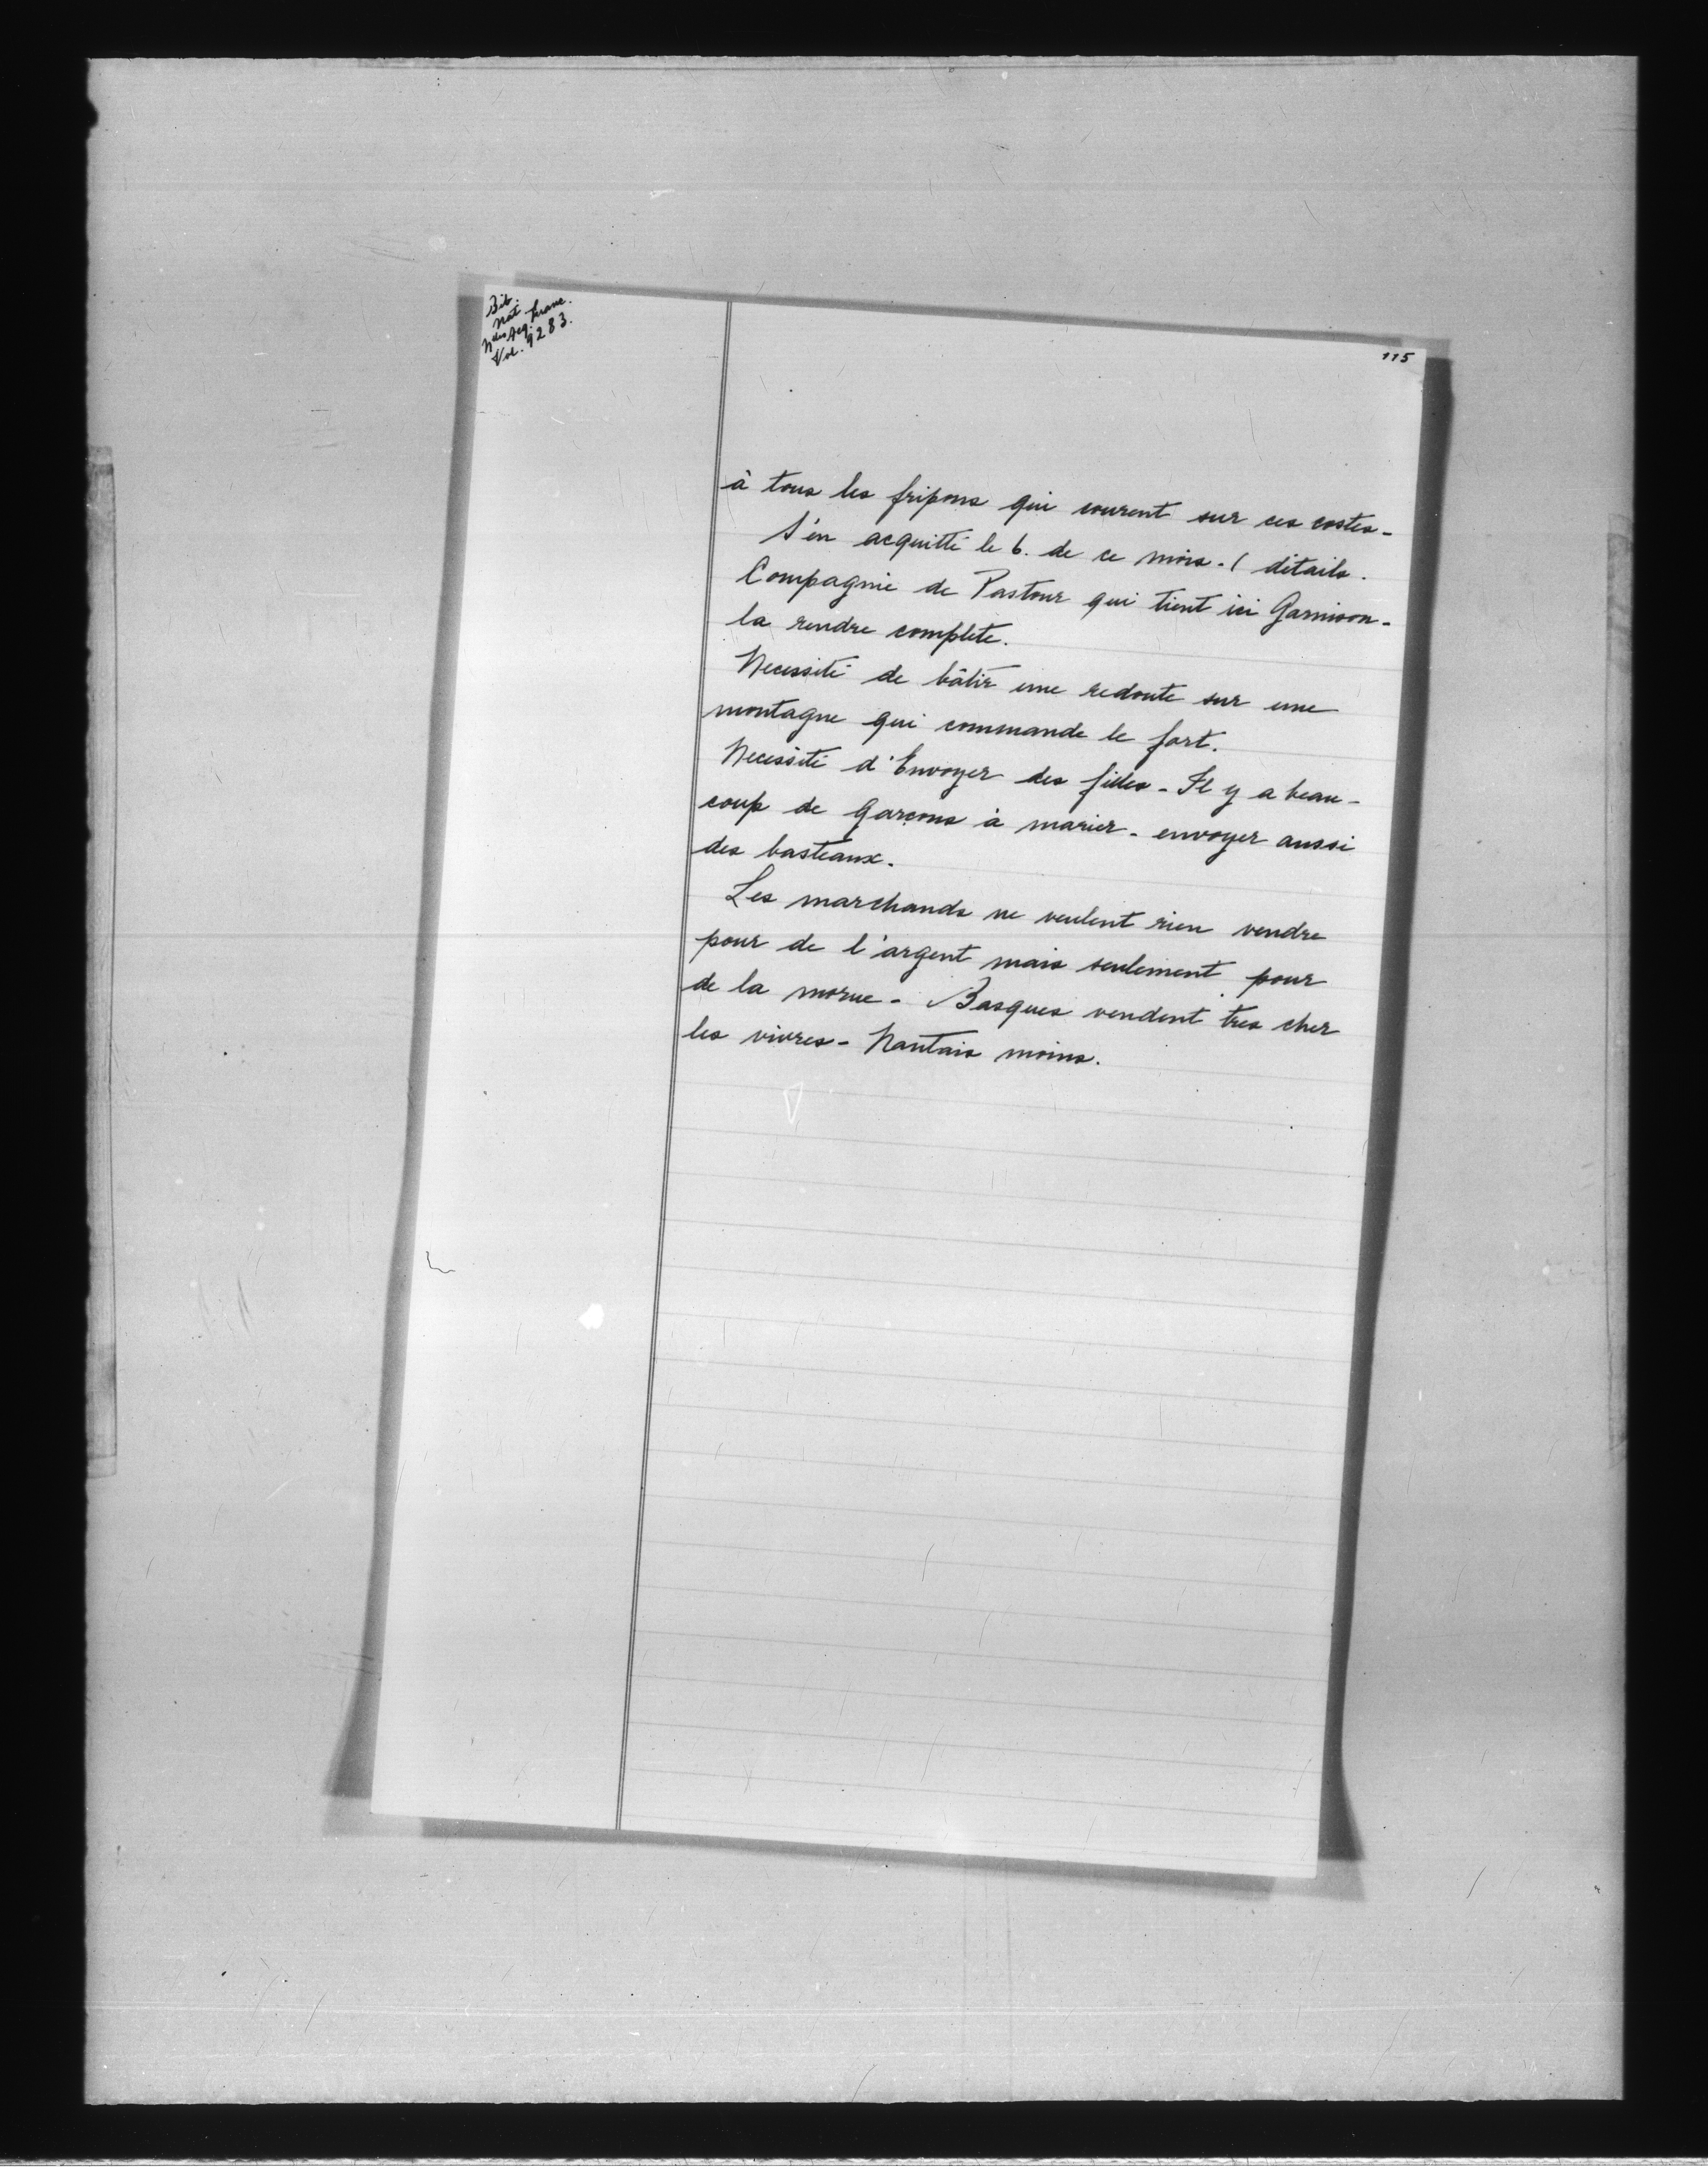 Bib.
Nat.
Nlles Acq. Franc.
Vol. 9283.
115
à tous les fripons qui courent sur ces costes-
S'en acquitté le 6. de ce mois. ( détails.
Compagnie de Pastour qui tient ici Garnison-
la rendre complete.
Necessité de bâtir une redoute sur une
montagne qui commande le fort.
Necessité d'Envoyer des filles - Il y a beau-
coup de Garçons à marier - envoyer aussi
des basteaux.
Les marchands ne veulent rien vendre
pour de l'argent mais seulement pour
de la morue - Basques vendent tres cher
les vivres - Nantais moins.